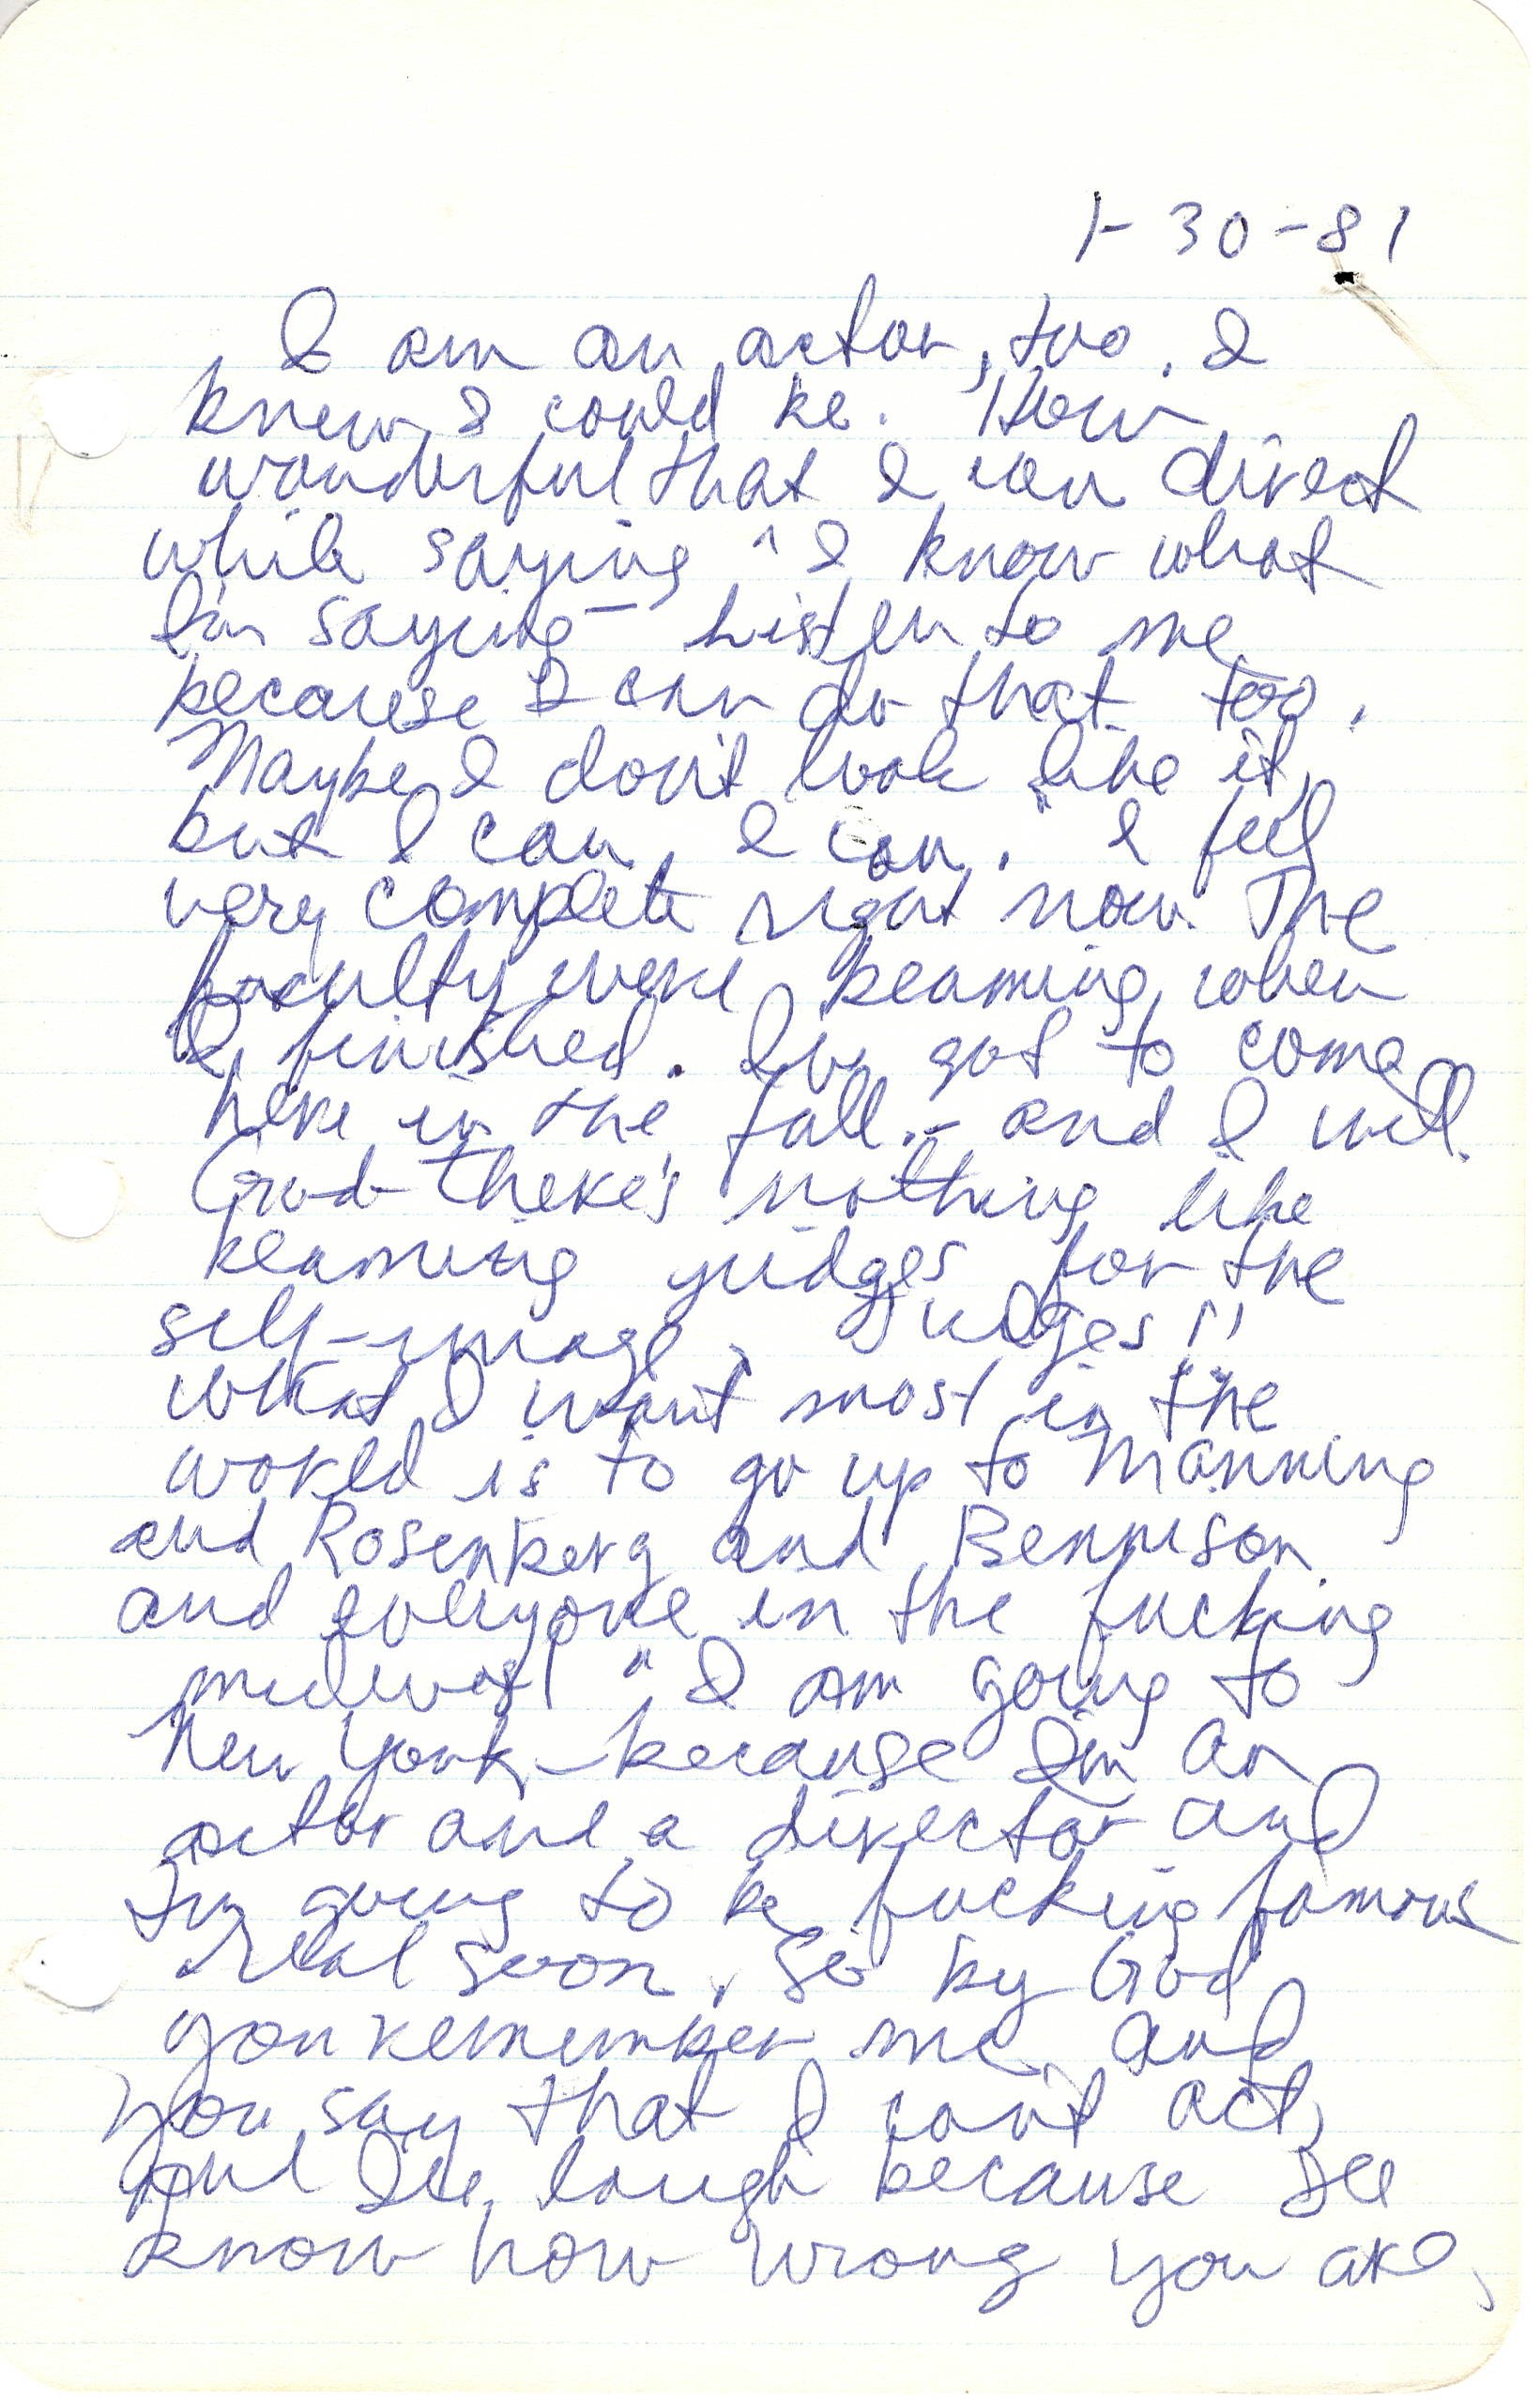 1-30-81
I am an actor, too. I
knew I could be. How
wonderful that I can direct
while saying "I know what
I'm saying - Listen to me
because I can do that too.
Maybe I don't look like it,
but I can, I can." I feel
very complete right now. The
faculty were beaming when
I finished. I've got to come
here in the fall - and I will.
God there's nothing like
beaming judges for the
self-image. Judges!!
What I want most in the
world is to go up to Manning
and Rosenberg and Bennison
and everyone in the fucking
midwest "I am going to
New York - because I'm an
actor and a director and
I'm going to be fucking famous
real soon. So by God
you remember me and
you say that I can't act,
and I'll laugh because I'll
know how wrong you are,